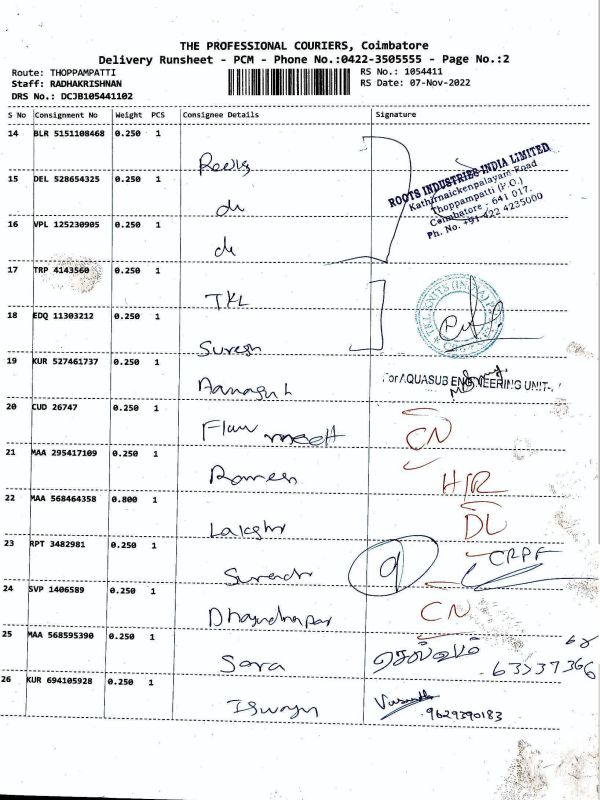 THE PROFESSIONAL COURIERS, Coimbatore
Delivery Runsheet - PCM - Phone No.:0422-3505555 - Page No.:2
Route: THOPPAMPATTI
RS No.: 1054411
Staff: RADHAKRISHNAN
RS Date: 07-Nov-2022
DRS No.: DCJB105441102
S No Consignment No Weight PCS Consignee Details Signature
14 BLR 5151108468 0.250 1
ROOTS INDUSTRIES INDIA LIMITED
Kathirnaickenpalayam Road
Thoppampatti (P.O.)
Coimbatore - 641 017.
Ph. No. +91-422 4235000
15 DEL 528654325 0.250 1 do
16 VPL 125230905 0.250 1 do
17 TRP 4143560 0.250 1 TKL
18 EDQ 11303212 0.250 1 Suresh
19 KUR 527461737 0.250 1 For AQUASUB ENGINEERING UNIT-
20 CUD 26747 0.250 1 CN
21 MAA 295417109 0.250 1 Ramesh H/R
22 MAA 568464358 0.800 1 DL
23 RPT 3482981 0.250 1 9 CRPF
24 SVP 1406589 0.250 1 CN
25 MAA 568595390 0.250 1 Sara செல்வம்
26 KUR 694105928 0.250 1 9629390183